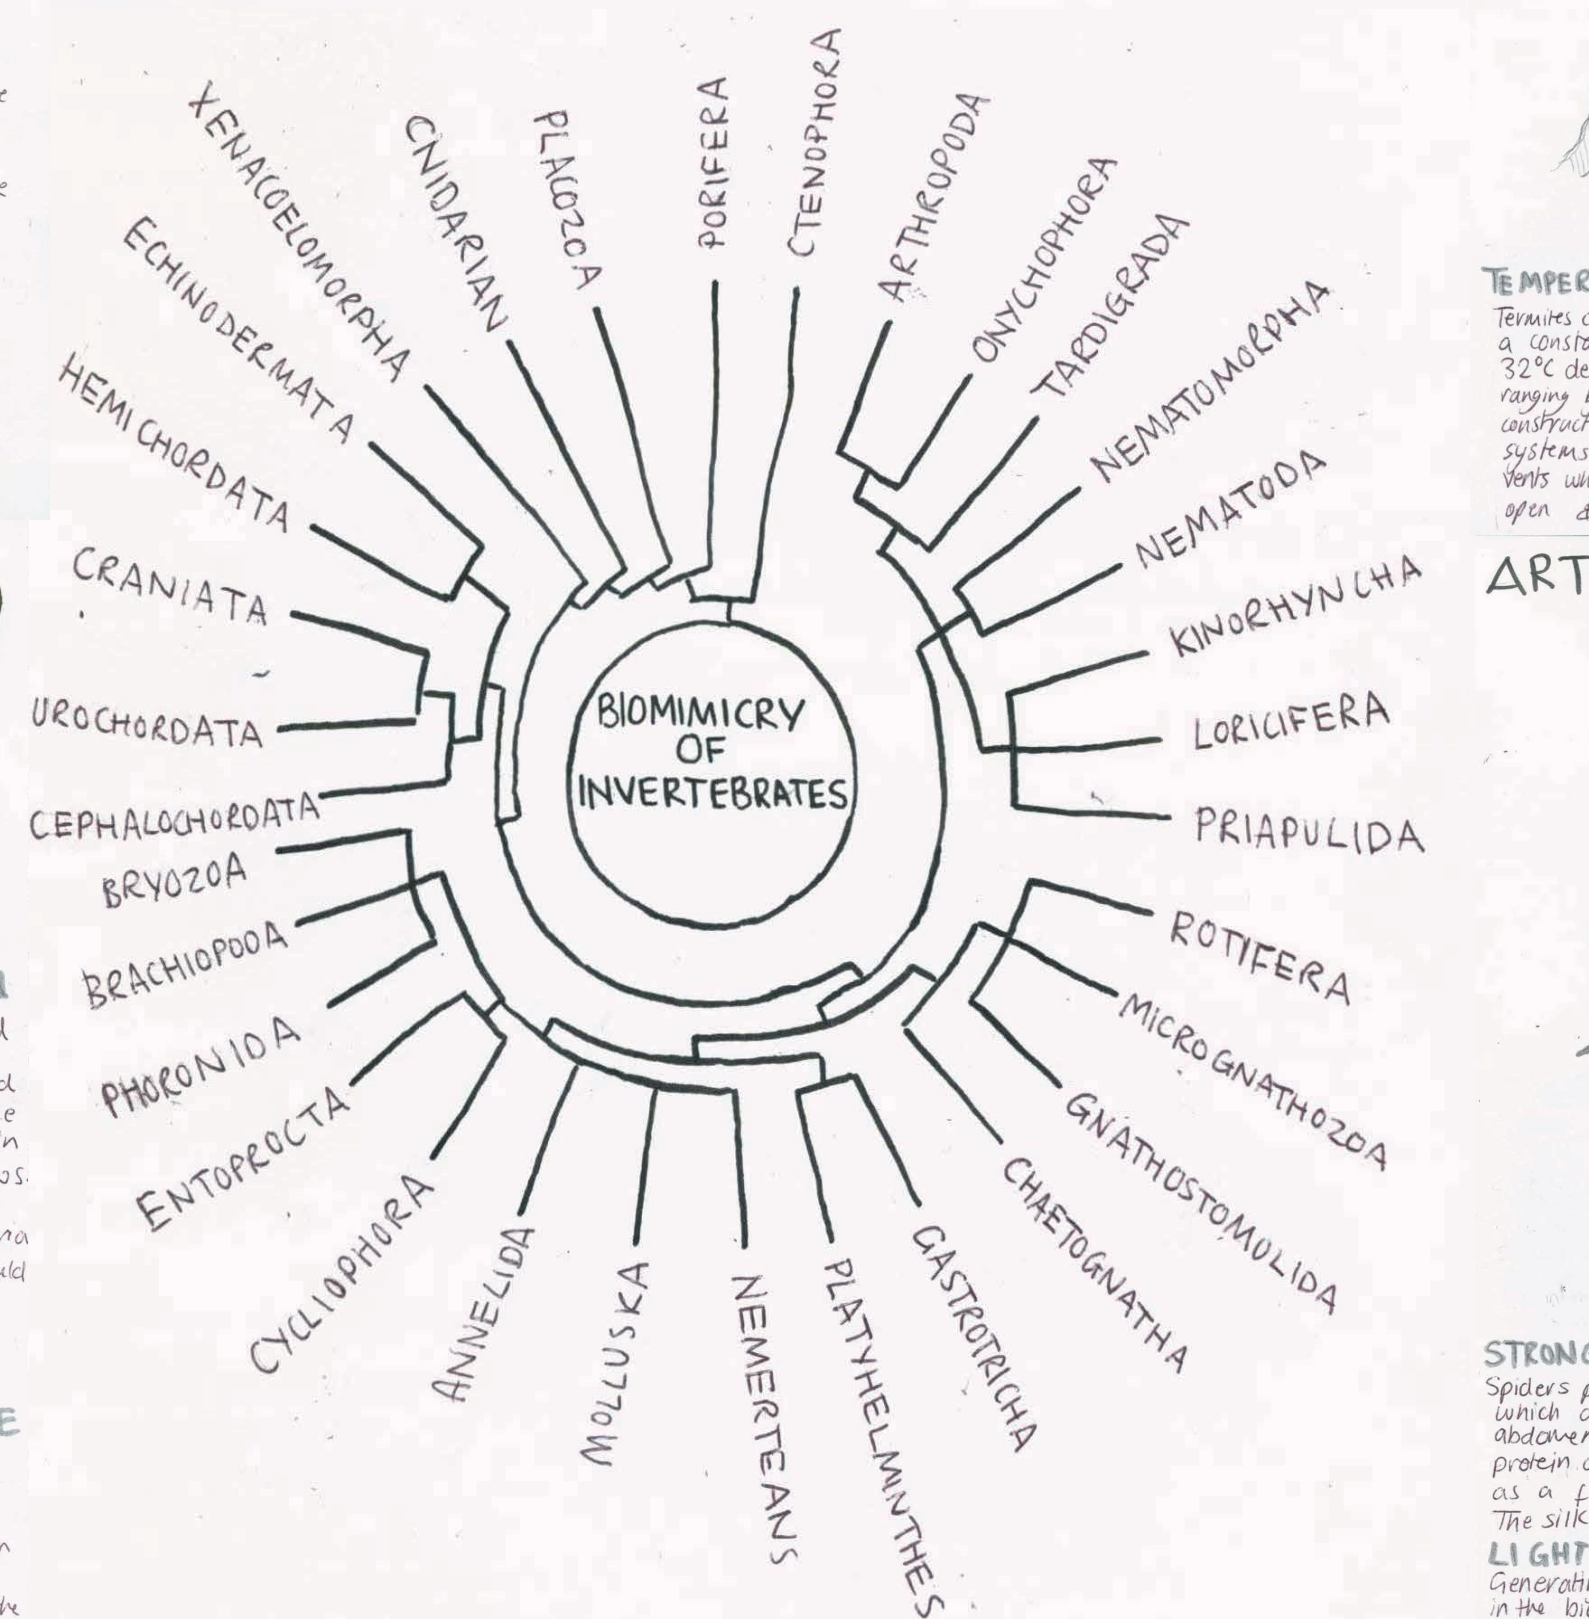 BIOMIMICRY
OF
INVERTEBRATES
CTENOPHORA
ARTHROPODA
ONYCHOPHORA
TARDIGRADA
NEMATOMORPHA
NEMATODA
KINORHYNCHA
LORICIFERA
PRIAPULIDA
ROTIFERA
MICROGNATHOZOA
GNATHOSTOMULIDA
CHAETOGNATHA
GASTROTRICHA
PLATYHELMINTHES
NEMERTEANS
MOLLUSKA
ANNELIDA
CYCLIOPHORA
ENTOPROCTA
PHORONIDA
BRACHIOPODA
BRYOZOA
CEPHALOCHORDATA
UROCHORDATA
CRANIATA
HEMICHORDATA
ECHINODERMATA
XENACOELOMORPHA
CNIDARIAN
PLACOZOA
PORIFERA
TEMPER
Termites
a consta
32°C de
ranging
construct
systems
vents wh
open &
ART
STRONG
Spiders
which
abdomen
protein
as a f
The silk
LIGHT
Generati
in the bi